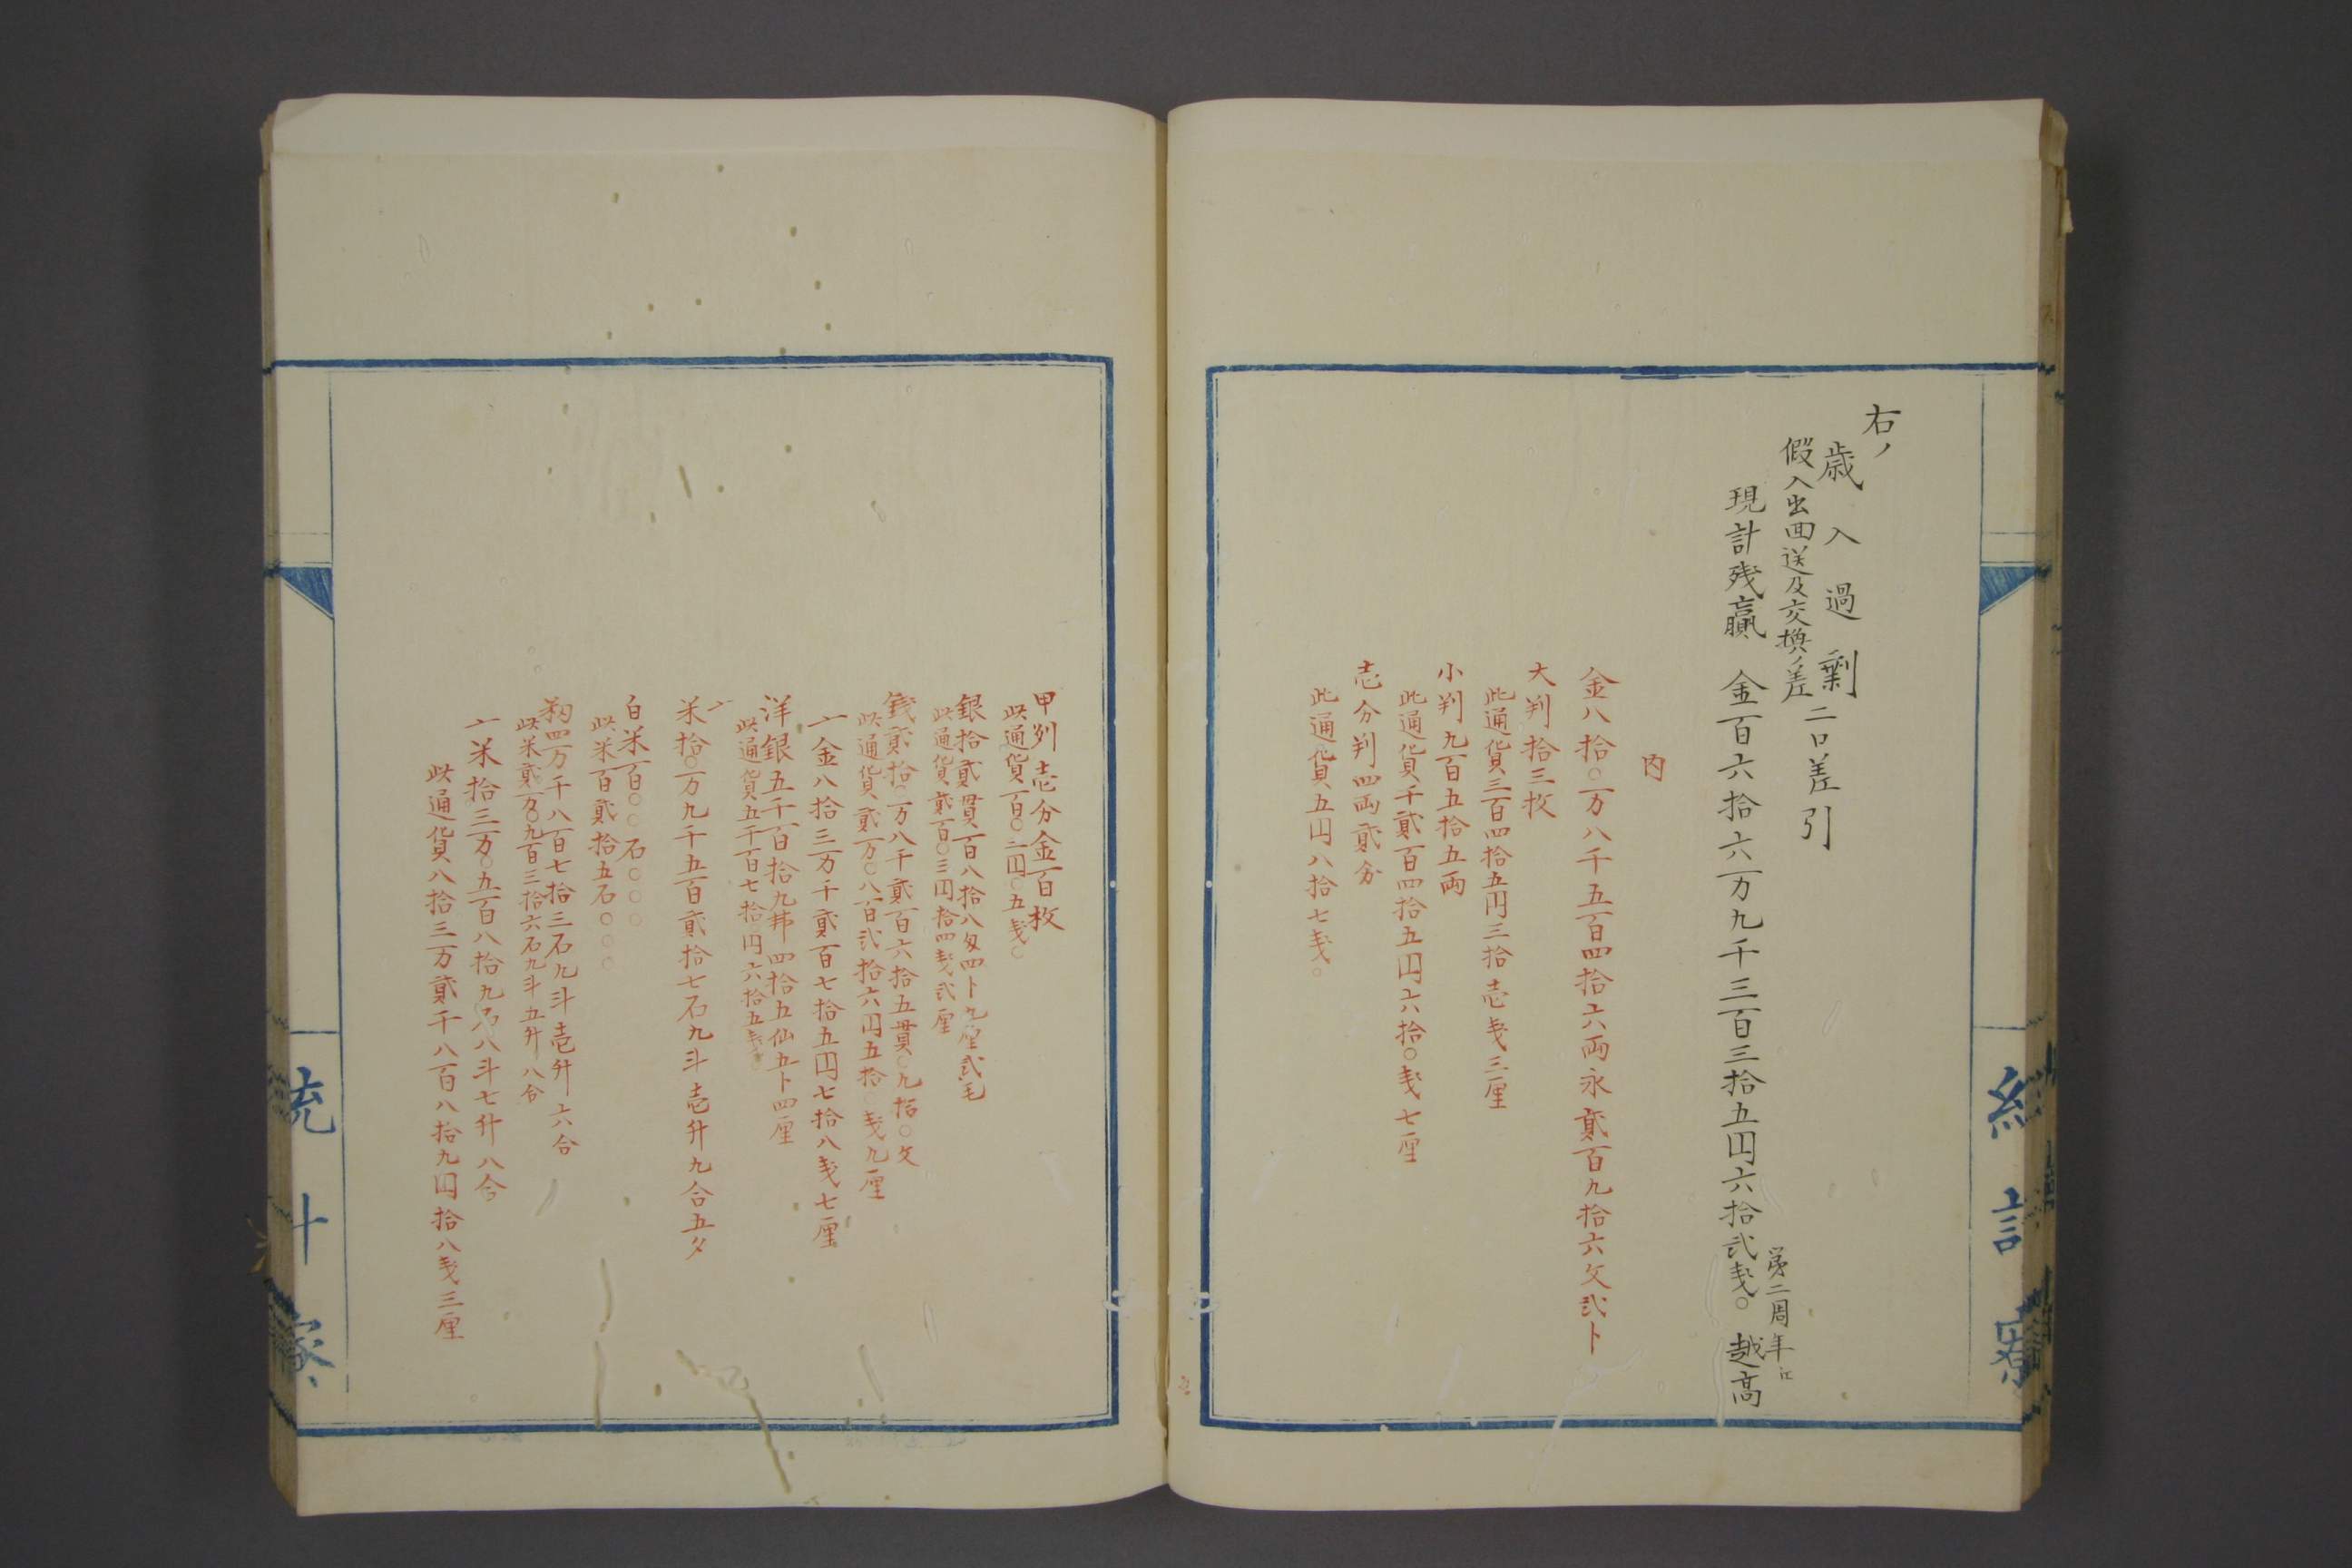 右ノ
歳入過剰
假入出回送及交換ノ差
二口差引
現計残贏 金百六拾六万九千三百三拾五円六拾弐戔〇 第二周年江
越高
内
金八拾〇万八千五百四拾六両永貳百九拾六文弐卜
大判拾三枚
此通貨三百四拾五円三拾壱戔三厘
小判九百五拾五両
此通貨千貳百四拾五円六拾〇戔七厘
壱分判四両貳分
此通貨五円八拾七戔〇
甲州壱分金百枚
此通貨百〇二円〇五戔〇
銀拾貳貫百八拾八匁四卜九厘弐毛
此通貨貳百〇三円拾四戔弐厘
銭貳拾〇万八千貳百六拾五貫〇九拾〇文
此通貨貳万〇八百弐拾六円五拾〇戔九厘
〆金八拾三万千貳百七拾五円七拾八戔七厘
洋銀五千百拾九弗四拾五仙五卜四厘
此通貨五千百七拾〇円六拾五戔〇
米拾〇万九千五百貳拾七石九斗壱升九合五夕
白米百〇〇石〇〇〇
此米百貳拾五石〇〇〇
籾四万千八百七拾三石九斗壱升六合
此米貳万〇九百三拾六石九斗五升八合
〆米拾三万〇五百八拾九石八斗七升八合
此通貨八拾三万貳千八百八拾九円拾八戔三厘